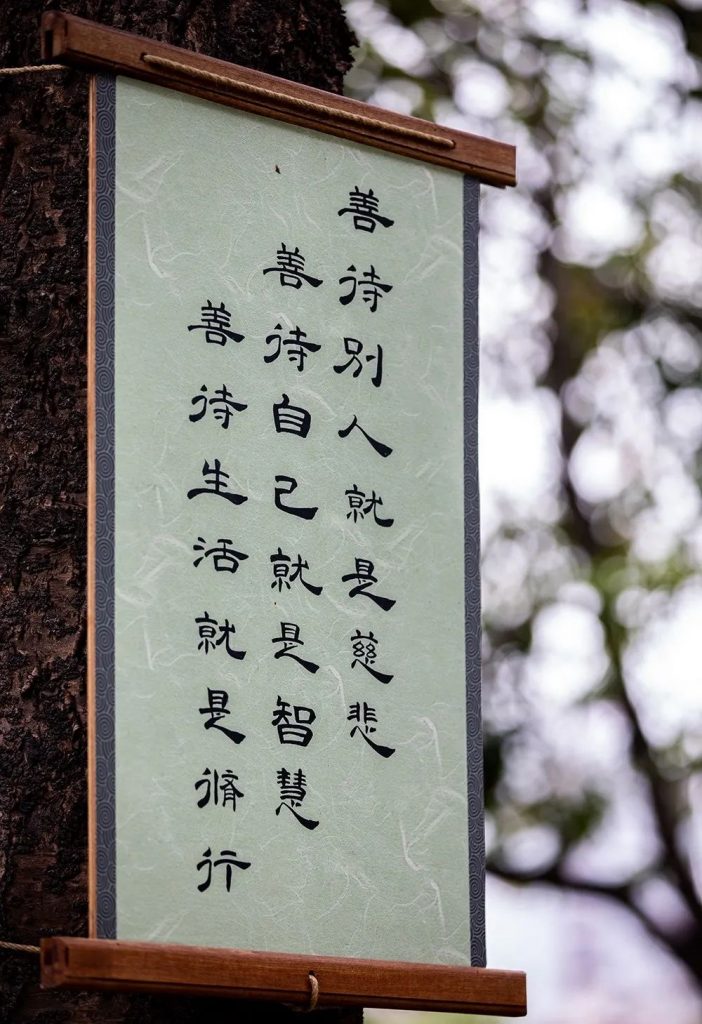 善待別人就是慈悲
善待自己就是智慧
善待生活就是脩行